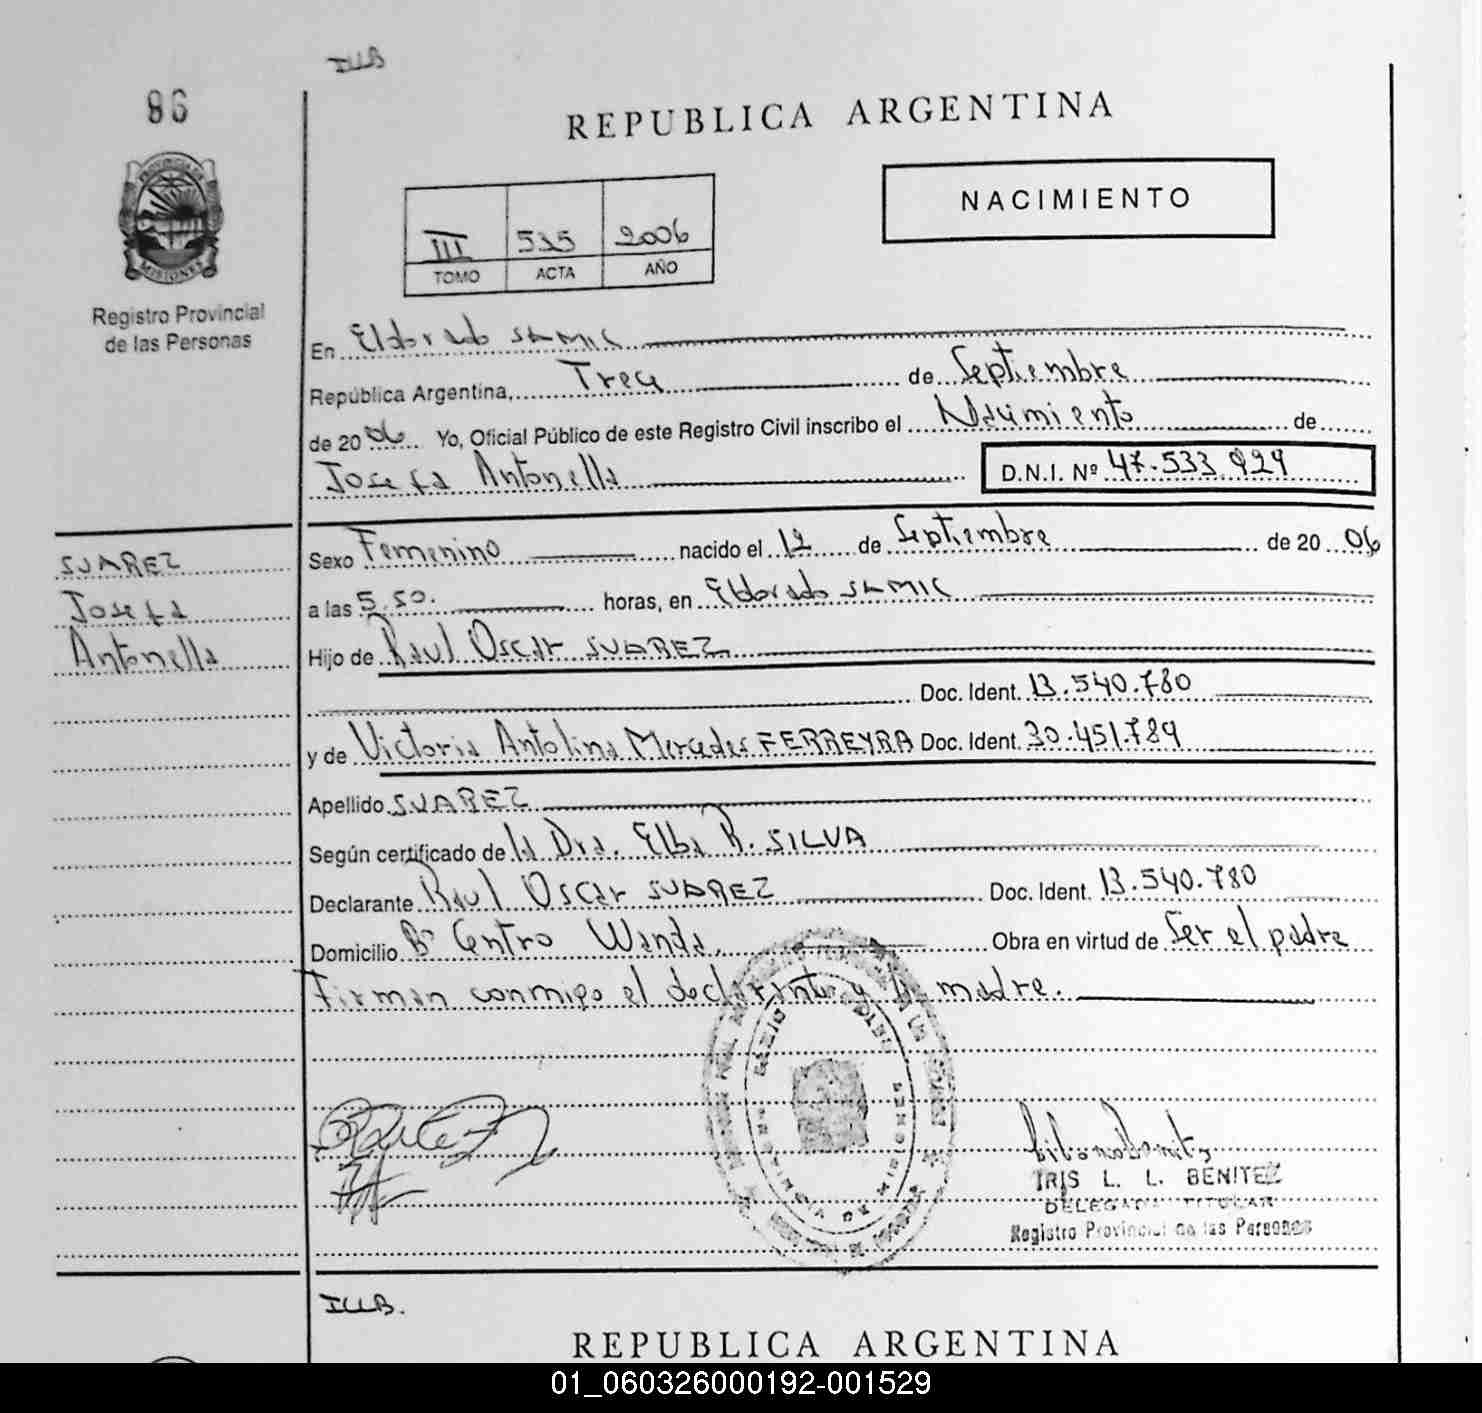 ILLB
86
REPUBLICA ARGENTINA
PROVINCIA DE
MISIONES
Registro Provincial
de las Personas
NACIMIENTO
III 535 2006
TOMO ACTA AÑO
En Eldorado SAMIC
República Argentina, Trece de Septiembre
de 2006 Yo, Oficial Público de este Registro Civil inscribo el Nacimiento de
Josefa Antonella D.N.I. Nº 47.533.929
SUAREZ
Josefa
Antonella
Sexo Femenino nacido el 12 de Septiembre de 2006
a las 5.50. horas, en Eldorado SAMIC
Hijo de Raul Oscar SUAREZ
Doc. Ident. 13.540.780
y de Victoria Antolina Mercedes FERREYRA Doc. Ident. 30.451.789
Apellido SUAREZ
Según certificado de la Dra. Elba R. SILVA
Declarante Raul Oscar SUAREZ Doc. Ident. 13.540.780
Domicilio Bº Centro Wanda, Obra en virtud de Ser el padre
Firman conmigo el declarante y la madre.
IRIS L. L. BENITEZ
DELEGADA TITULAR
Registro Provincial de las Personas
ILLB.
REPUBLICA ARGENTINA
01_060326000192-001529